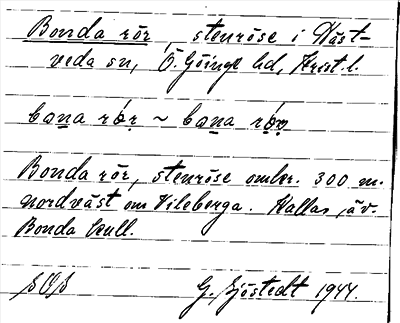 Bonda rör stenröse i Näst-
veda sn, Ö. Göinge hd, Krist. l.
bona rór ~ bona
Bonda rör, stenröse omkr. 300 m.
nordväst om Vileberga. Kallas äv.
Bonda kull.
SOS G. Sjöstedt 1944.